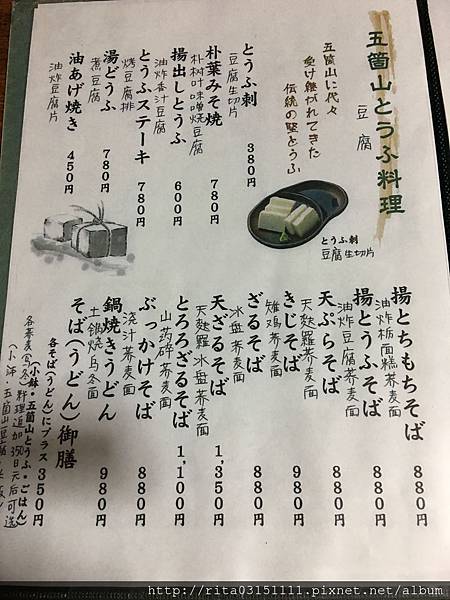 五箇山とうふ料理
豆腐
五箇山に代々
受け継がれてきた
伝統の堅とうふ
とうふ刺
豆腐生切片
とうふ刺 380円
豆腐生切片
朴葉みそ焼 780円
朴树叶味噌烧豆腐
揚出しとうふ 600円
油炸香汁豆腐
とうふステーキ 780円
烤豆腐排
湯どうふ 780円
煮豆腐
油あげ焼き 450円
油炸豆腐片
揚とちもちそば 880円
油炸栃面糕荞麦面
揚とうふそば 880円
油炸豆腐荞麦面
天ぷらそば 980円
天麩羅荞麦面
きじそば 880円
雉鸡荞麦面
ざるそば 880円
冰盘荞麦面
天ざるそば 1,350円
天麩羅冰盘荞麦面
とろろざるそば 1,100円
山药碎荞麦面
ぶっかけそば 880円
浇汁荞麦面
鍋焼きうどん 980円
土鍋烧乌冬面
そば(うどん)御膳
各そば(うどん)にプラス 350円
(小鉢・五箇山とうふ・ごはん)
各荞麦面(冬)料理追加350日元后可选
(小钵・五箇山豆腐・
http://rita03151111.pixnet.net/album